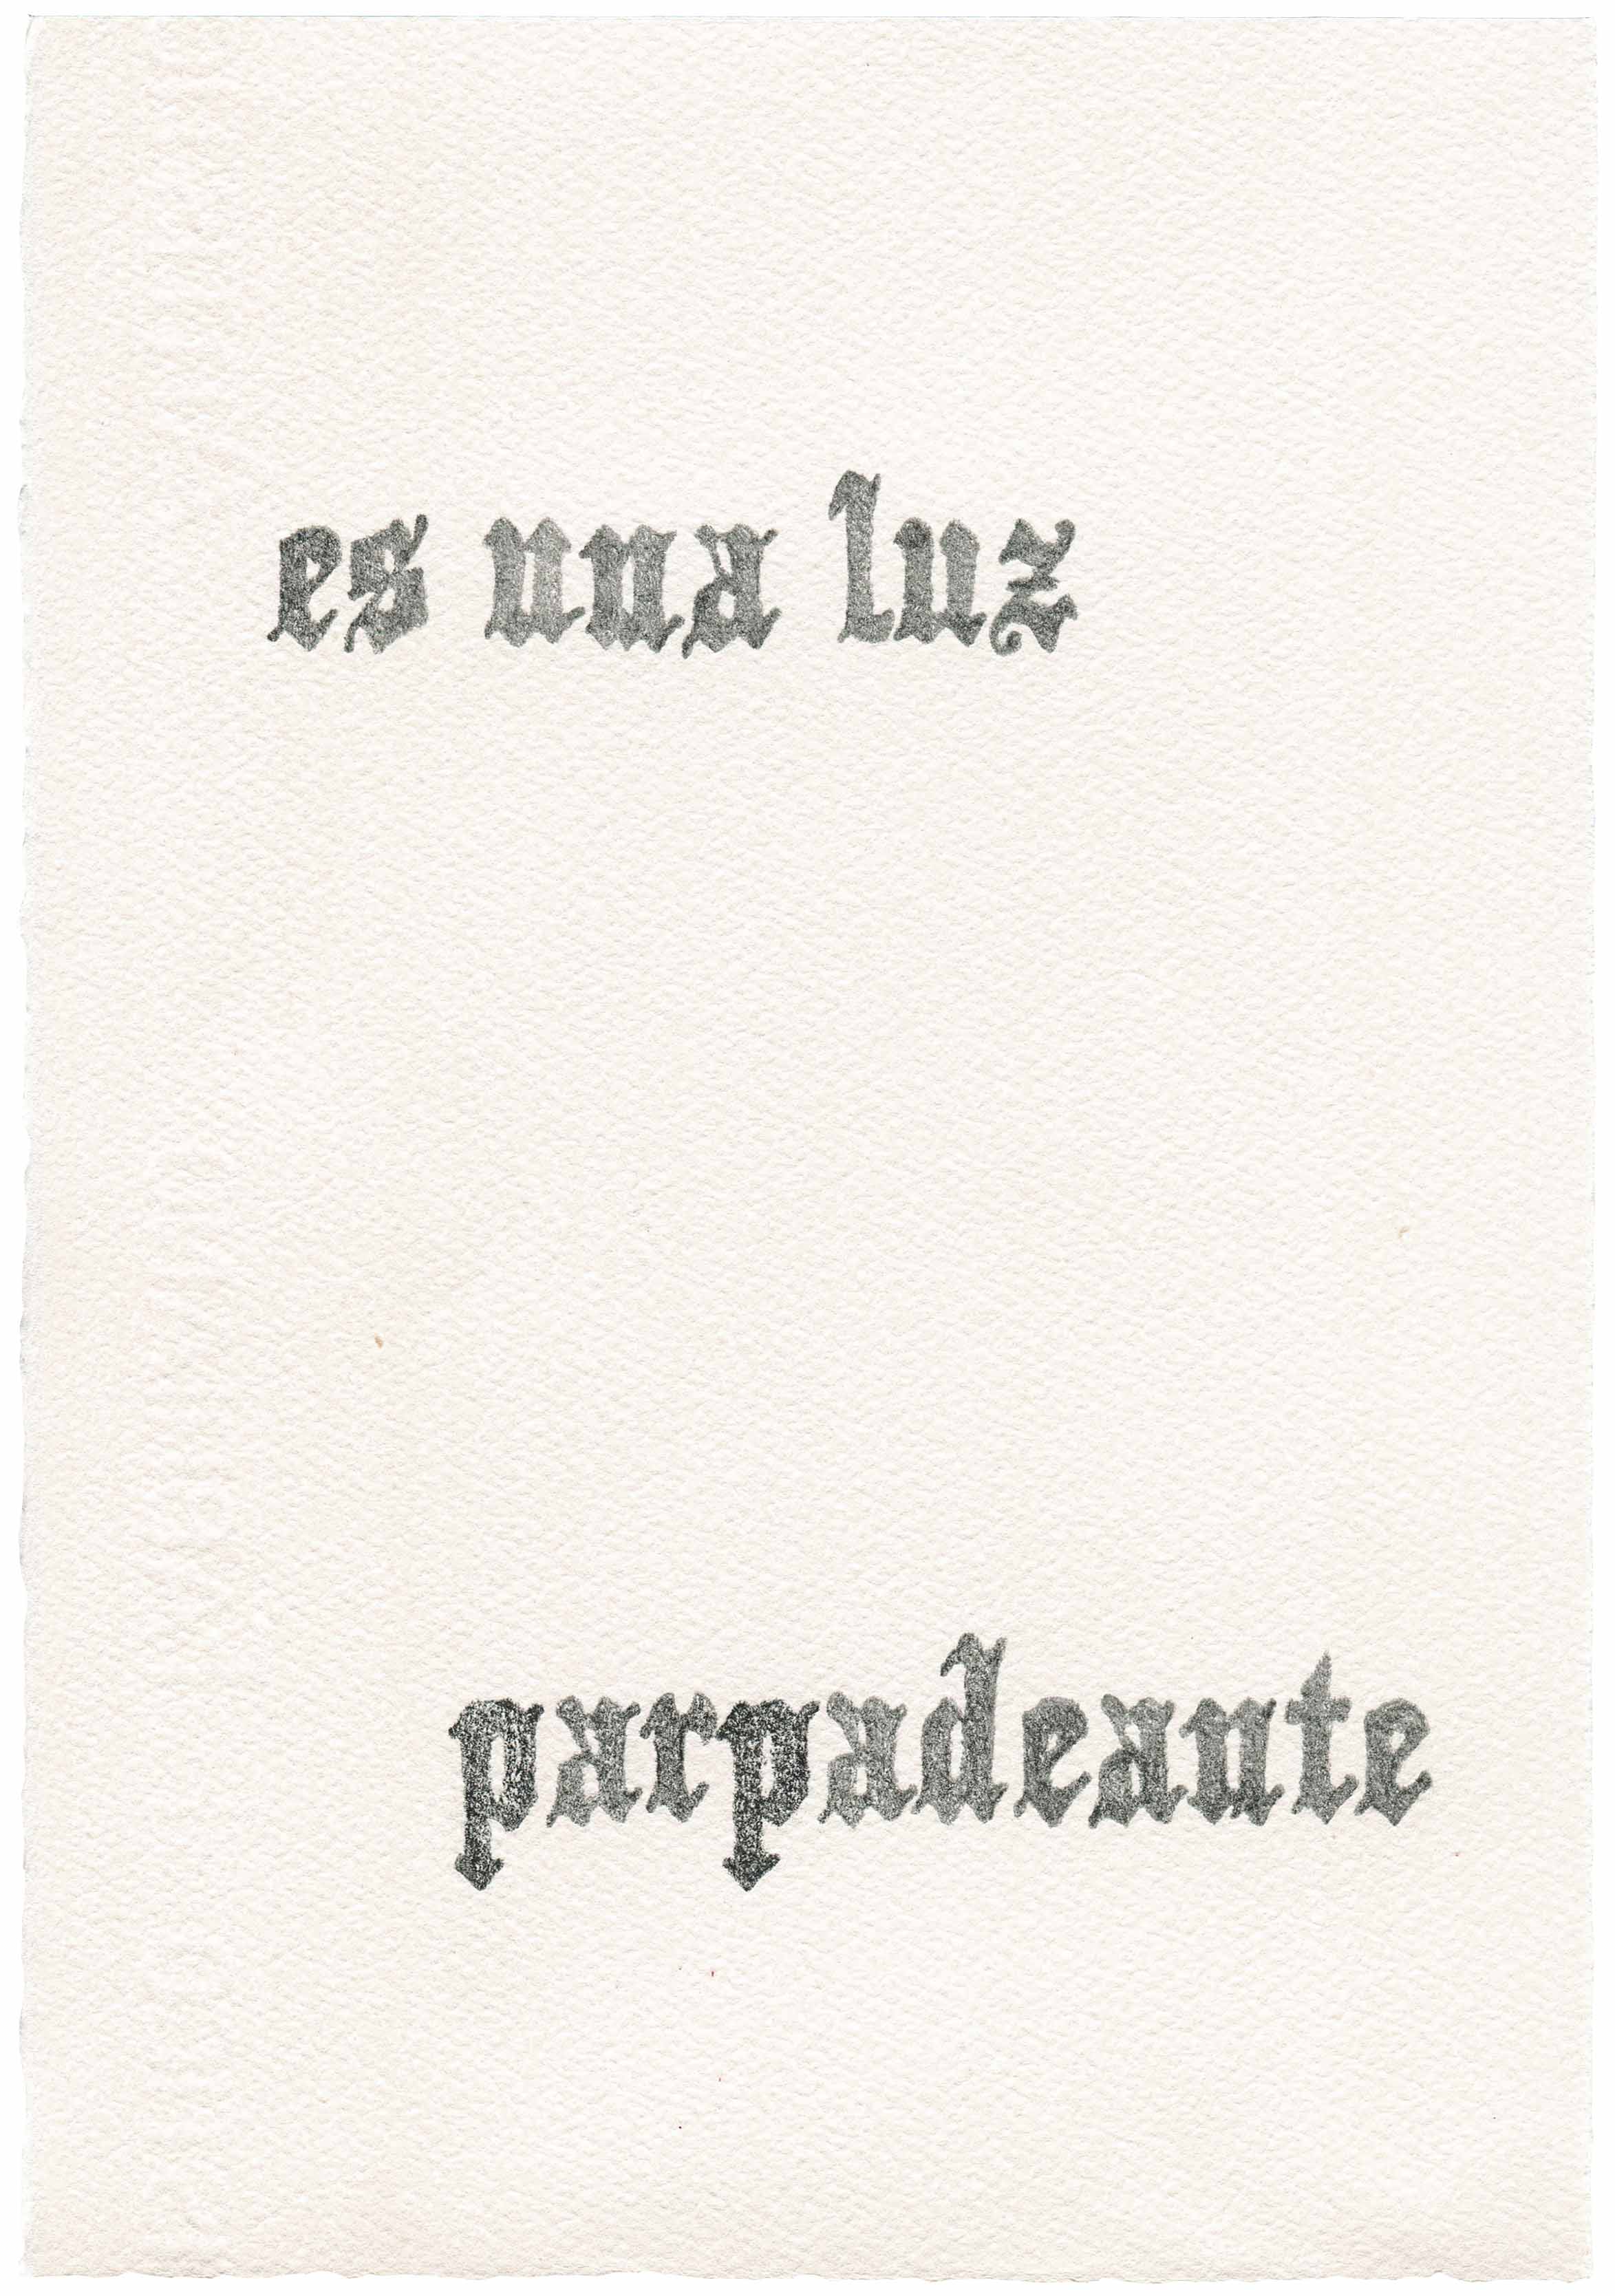 es una luz
parpadeante